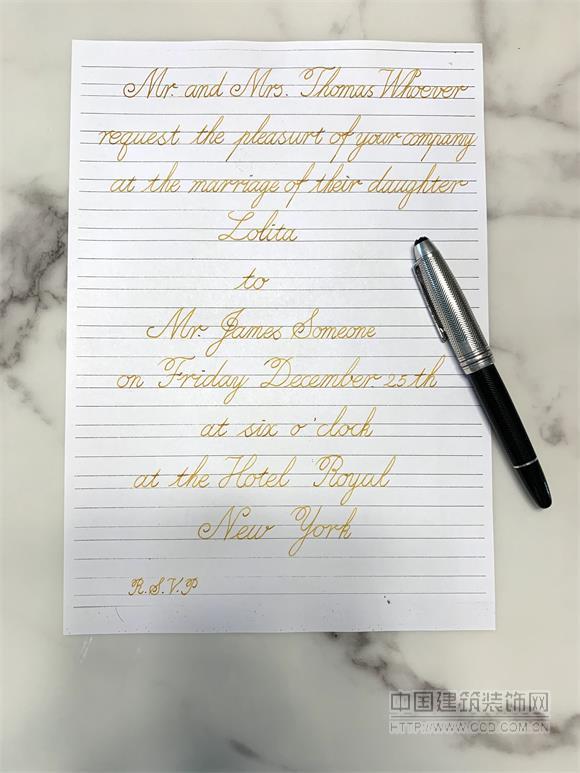 Mr. and Mrs. Thomas Whoever
request the pleasurt of your company
at the marriage of their daughter
Lolita
to
Mr. James Someone
on Friday December 25th
at six o'clock
at the Hotel Royal
New York
R.S.V.P
中国建筑装饰网
HTTP://WWW.CCD.COM.CN